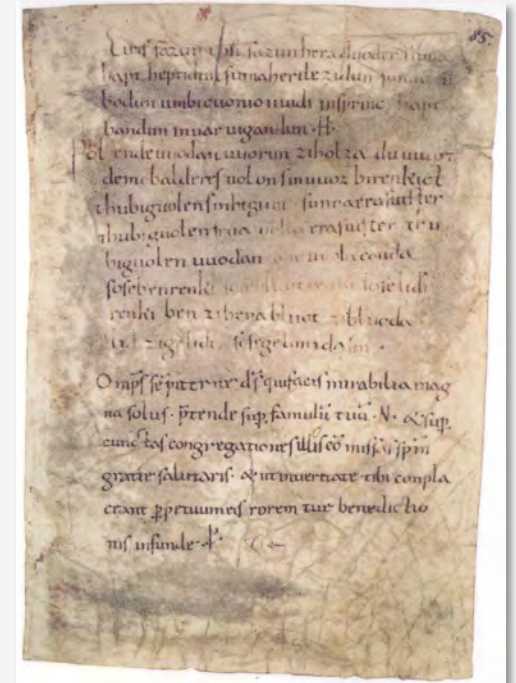 Eiris sazun idisi sazunheraduoder suma
hapt heptidun sumaherilezidun suma
bodun umbicuonio uuidi insprinc hapt
bandun inuar uigandun· H·
Phol endeuuodan uuorun ziholza du uuart
demobalderes uolon sinuuoz birenkict
thubiguolensinhtgunt· sunnaerasuister
thubiguolenfriia uolla erasuister thu
biguolen uuodan sohe uuolaconda
sosebenrenki sosebluotrenki soselidi
renki ben zibena bluot zibluoda
lid zigeliden sosegelimidasin·
85.
Omps sēpiterne ds̄ quifacis mirabilia mag
na solus· p̄tende sup̲ famulū tuū ·N· & sup̲
cunctas congregationes illis cō missas sp̄m
gratie salutaris· & utinueritate tibi conpla
ceant p̲petuumeis rorem tue benedictio
nis infunde· P̲·